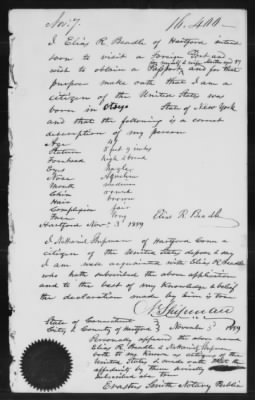 Nov. 7. 16.400—
I Elias R Beadle of Hartford intend
to visit a Foreign Port and
wish to obtain a Passport and for that
purpose make oath that I am a
citizen of the United States was
born in Otsego State of New York
and that the following is a correct
description of my person
Age
Stature 5 feet 9 inches
Forehead high & broad
Eyes hazle
Nose Aquiline
Mouth medium
Chin round
Hair brown
Complexion fair
Face long Elias R Beadle
Hartford Nov. 3 1859
I Nathaniel Shipman of Hartford Conn a
citizen of the United States depose & say
I am well acquainted with Elias R Beadle
who hath subscribed the above application
and to the best of my Knowledge & belief
the declaration made by him is true
N Shipman
State of Connecticut
City & County of Hartford November 3 1859
Personally appeared the above named
Elias R Beadle & Nathaniel Shipman
both to me Known as citizens of the
United States & made oath to the
by them severally
subscribed are true
Erastus Smith Notary Public